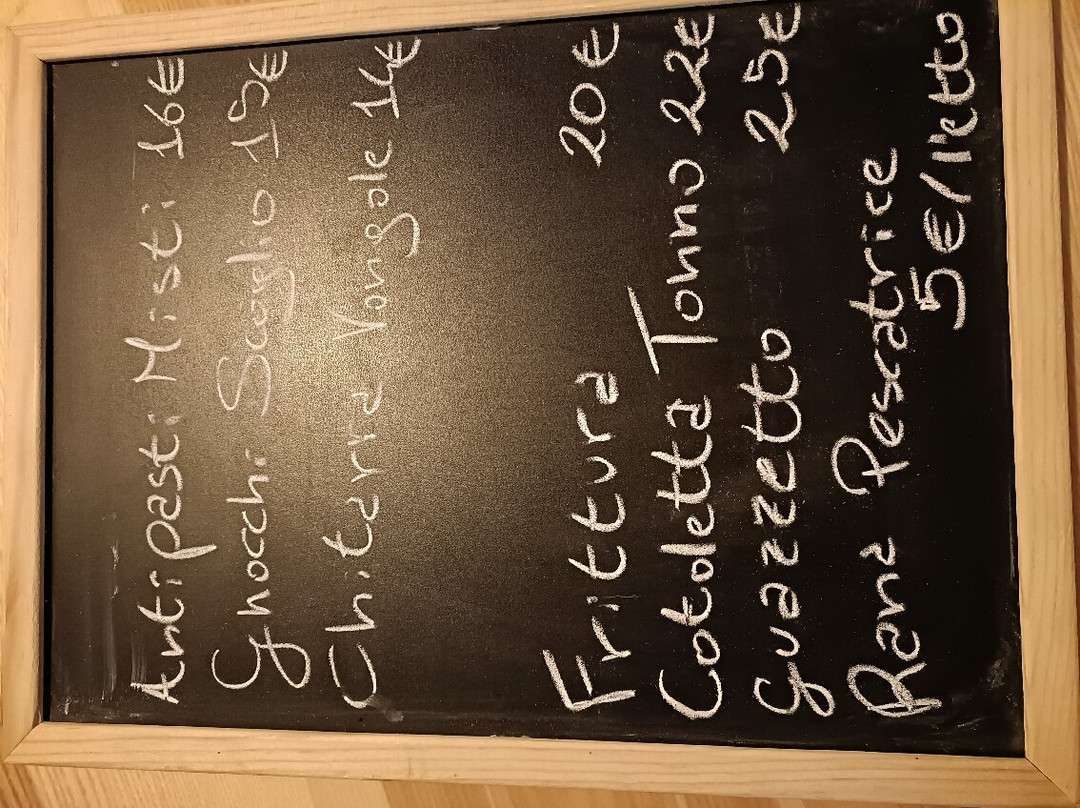 Antipasti Misti 16€
Gnocchi Scoglio 15€
Chitarra Vongole 14€
Frittura 20€
Cotoletta Tonno 22€
Guazzetto 25€
Rana Pescatrice
5€/l'etto